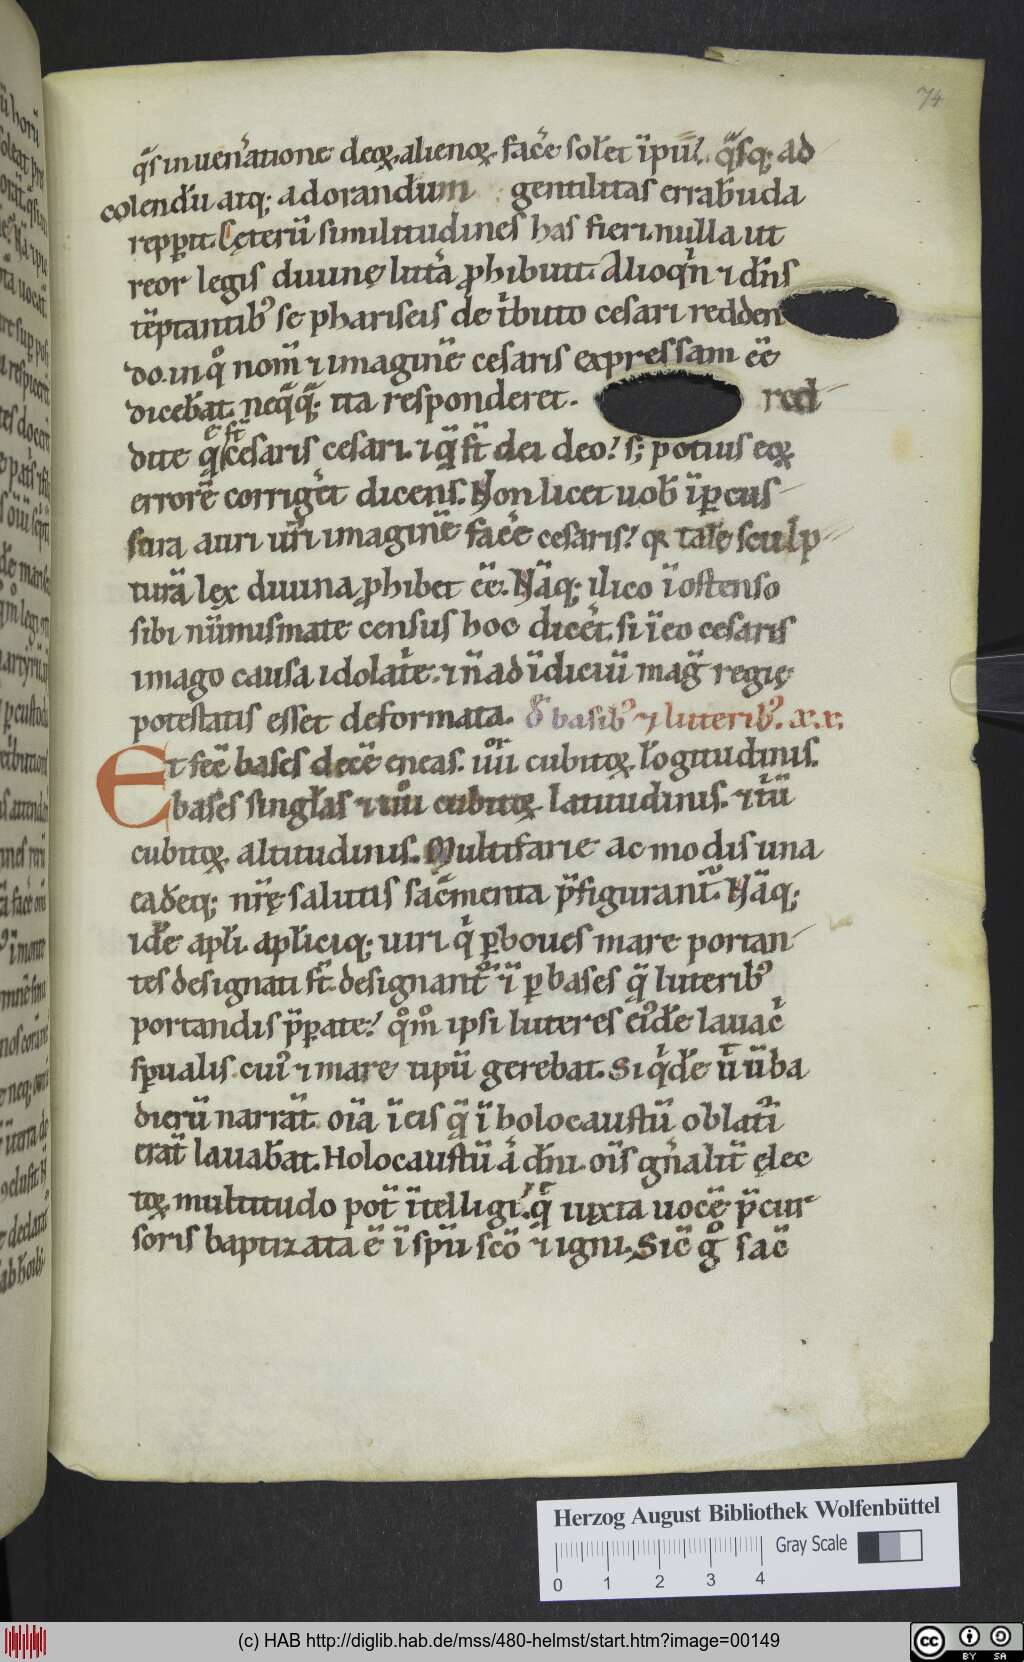 74
q̄s in uen̄atione deoꝝ alienoꝝ facͤe solet ïpiꝰ. q̄sq; ad
colendū atq; adorandum gentilitas errab̄uda
repp̲it. Cęterū similitudines has fieri nulla ut
reor legis diuinę lit̄a ꝓhibuit. Alioqͥn ⁊ dn̄s
tēptantibꝰ se phariseis de tͥbuto cesari redden
do. in qͦ nom̄ ⁊ imaginē cesaris expressam ēē
diceb̄at. neq̄q̄; ita responderet. red
dite q̄ ſt̄ cesaris cesari. ⁊ q̄ ſt̄ dei deo. s; potius eoꝝ
errorē corrigͤet dicens. Non licet uob̄ ïp̲cus
sura auri ur̄i imaginē facͤe cesaris. qꝛ tale sculp
turā lex diuina ꝓhibet ēē. Nāq; ilico ï ostenso
sibi nūmismate census hoc dicͤet. si ï eo cesaris
imago causa idolat͛e. ⁊ n̄ ad ïdiciū mag̃ regię
potestatis esset deformata. δ̄ basibꝰ ⁊ luteribꝰ. xx.
Et fec̄ bases decē eneas. iiii͛ cubitoꝝ lōgitudinis.
bases singl̄as ⁊ iiii͛ cubitoꝝ latitudinis. ⁊ tͥū
cubitoꝝ altitudinis. Multifarie ac modis una
eadeq; nr̄ę salutis sac̄menta p̄figurant͛. Nāq;
idē apl̄i apl̄iciq; uiri qͥ p̲ boues mare portan
tes designati ſt̄. designant͛ ⁊ ï p̲ bases q̄ luteribꝰ
portandis p̄p̲ate. qͦm̄ ipsi luteres eiꝰdē lauacͥ
sp̲ualis cuiꝰ ⁊ mare tipū gerebat. Siqͥdē ut ūba
dierū narrāt. oīa ï eis q̄ ï holocaustū oblati
erāt lauab̄at. Holocaustū aͥ dn̄i. oīs gn̄alit̄ elec
toꝝ multitudo pot̄ ïtelligi. qͥ iuxta uocē p̄cur
soris baptizata ē ï spū scō ⁊ igni. Sic̄ gͦ sac̄
Herzog August Bibliothek Wolfenbüttel
Gray Scale
0 1 2 3 4
(c) HAB http://diglib.hab.de/mss/480-helmst/start.htm?image=00149
cc BY SA